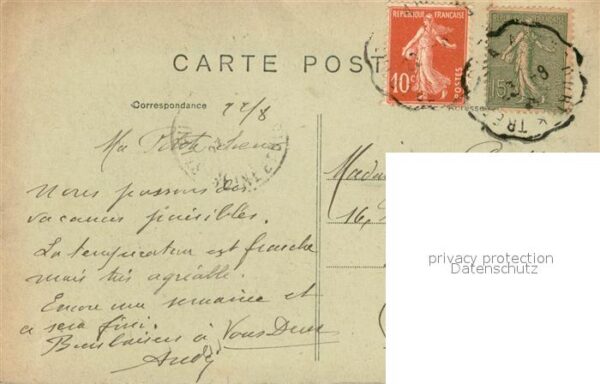 REPUBLIQUE FRANÇAISE
10c POSTES
15c
CARTE POST
Correspondance
22/8
Ma
Madam
16,
Nous passons des
vacances paisibles.
La température est fraiche
mais très agréable.
Encore une semaine et
ce sera fini.
Bons baisers à Vous Deux
André
privacy protection
Datenschutz